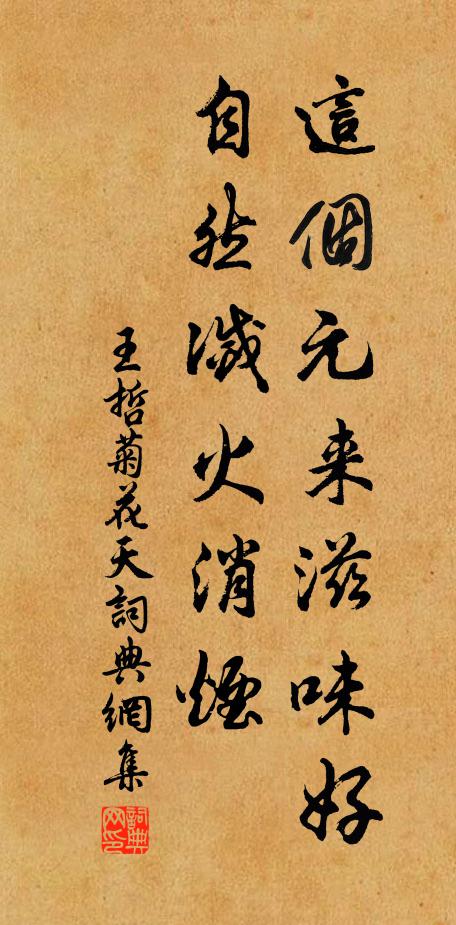 這個元来滋味好
自然滅火消煙
王哲菊花天詞典網集
詞典
网印